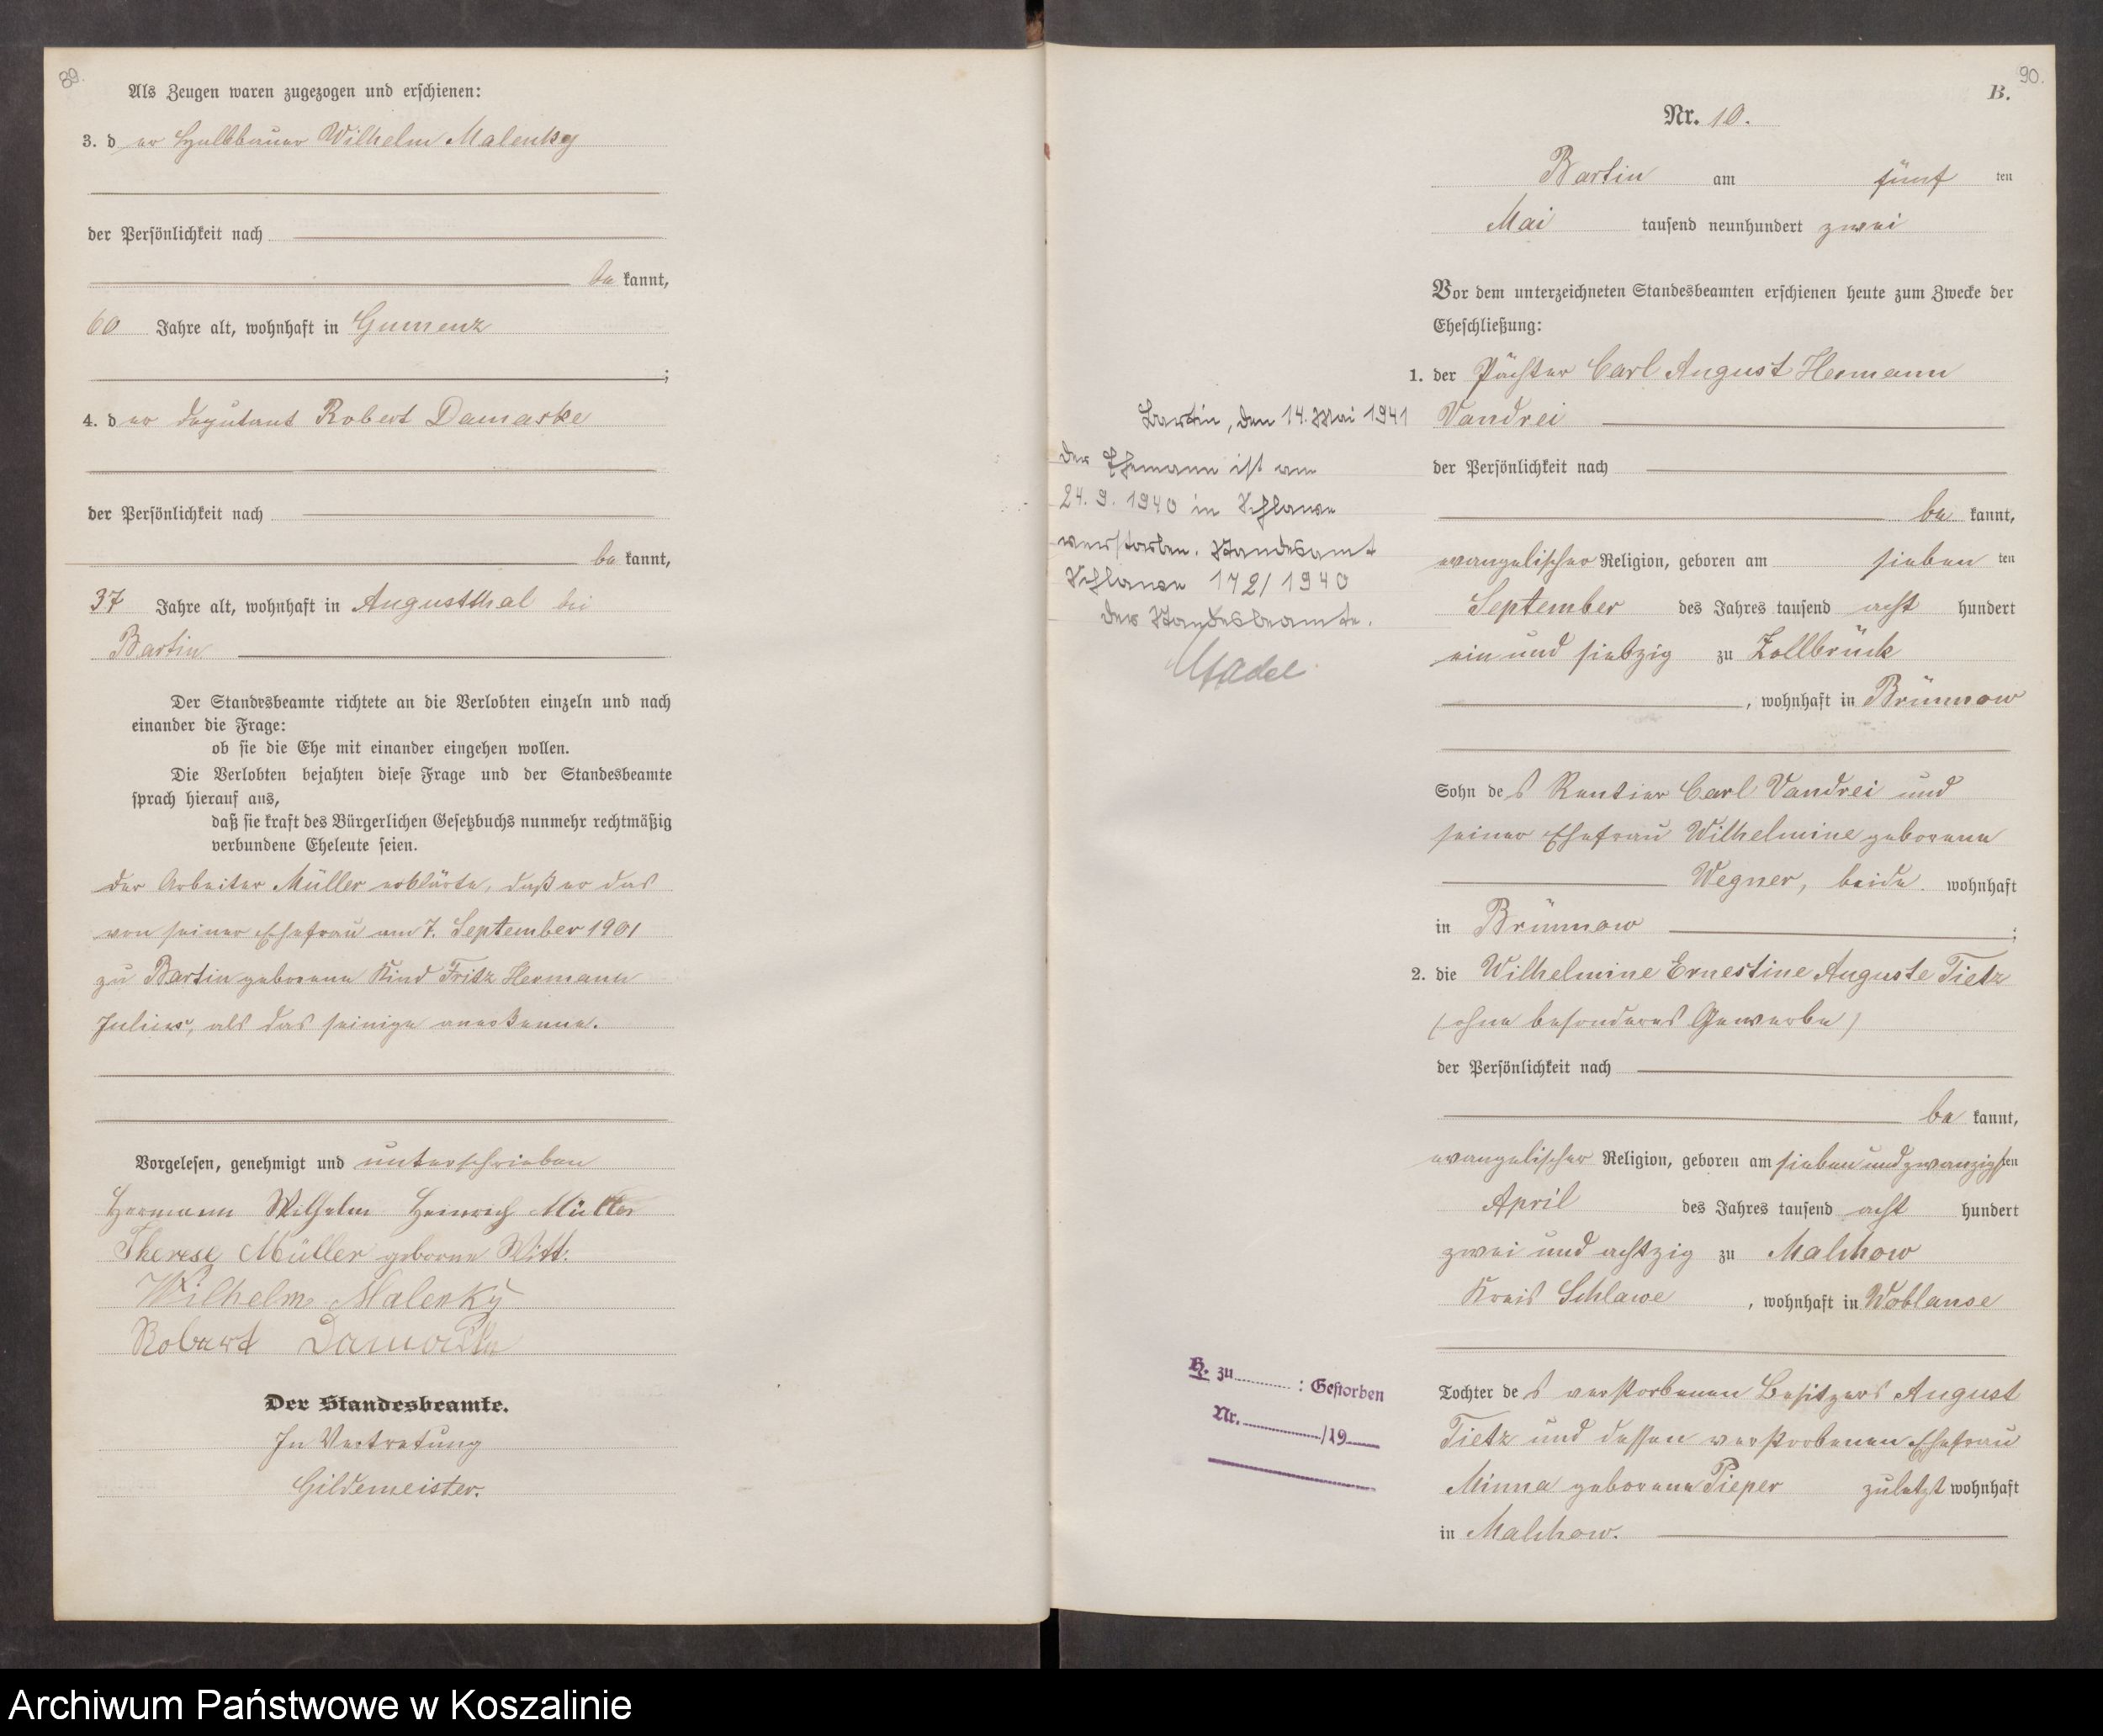 89.
Als Zeugen waren zugezogen und erschienen:
3. der Halbbauer Wilhelm Malenky
der Persönlichkeit nach
bekannt,
60 Jahre alt, wohnhaft in Gumenz
;
4. der Deputant Robert Damaske
der Persönlichkeit nach
bekannt,
37 Jahre alt, wohnhaft in Augustthal bei
Bartin
Der Standesbeamte richtete an die Verlobten einzeln und nach
einander die Frage:
ob sie die Ehe mit einander eingehen wollen.
Die Verlobten bejahten diese Frage und der Standesbeamte
sprach hierauf aus,
daß sie kraft des Bürgerlichen Gesetzbuchs nunmehr rechtmäßig
verbundene Eheleute seien.
Der Arbeiter Müller erklärte, daß er das
von seiner Ehefrau am 7. September 1901
zu Bartin geborene Kind Fritz Hermann
Julius, als das seinige anerkenne.
Vorgelesen, genehmigt und unterschrieben
Hermann Wilhelm Heinrich Müller
Therese Müller geborne Witt.
Wilhelm Malenky
Robert Damaske
Der Standesbeamte.
In Vertretung
Gildemeister.
90.
B.
Nr. 10.
Bartin am fünften
Mai tausend neunhundert zwei
Vor dem unterzeichneten Standesbeamten erschienen heute zum Zwecke der
Eheschließung:
1. der Pächter Carl August Hermann
Vandrei
der Persönlichkeit nach
bekannt,
evangelischer Religion, geboren am siebenten
September des Jahres tausend acht hundert
ein und siebzig zu Zollbrück
, wohnhaft in Brünnow
Sohn des Rentier Carl Vandrei und
seiner Ehefrau Wilhelmine geborene
Wegner, beide wohnhaft
in Brünnow ;
2. die Wilhelmine Ernestine Auguste Tietz
(ohne besonderes Gewerbe)
der Persönlichkeit nach
bekannt,
evangelischer Religion, geboren am siebenundzwanzigsten
April des Jahres tausend acht hundert
zwei und achtzig zu Malchow
Kreis Schlawe , wohnhaft in Woblanse
Tochter des verstorbenen Besitzers August
Tietz und dessen verstorbenen Ehefrau
Minna geborene Pieper zuletzt wohnhaft
in Malchow.
Bartin, den 14. Mai 1941
Der Ehemann ist am
24. 9. 1940 in Schlawe
verstorben. Standesamt
Schlawe 172/1940
Der Standesbeamte.
H. zu : Gestorben
Nr. /19
Archiwum Państwowe w Koszalinie